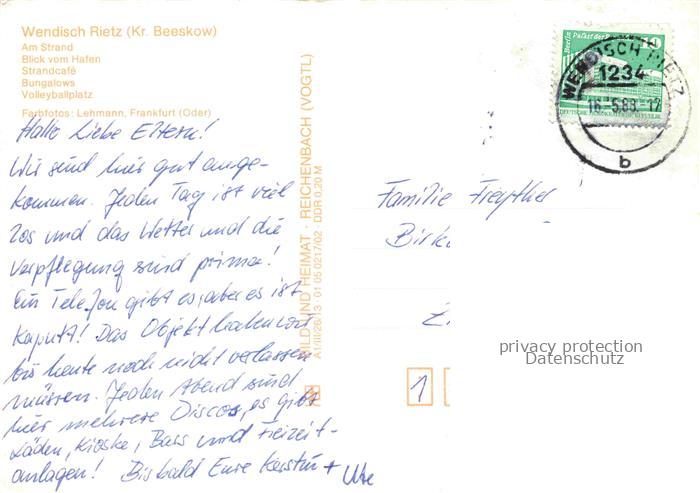 Wendisch Rietz (Kr. Beeskow)
Am Strand
Blick vom Hafen
Strandcafé
Bungalows
Volleyballplatz
Farbfotos: Lehmann, Frankfurt (Oder)
Hallo Liebe Eltern!
Wir sind hier gut ange-
kommen. Jeden Tag ist viel
los und das Wetter und die
Verpflegung sind prima!
Ein Telefon gibt es, aber es ist
Kaputt! Das Objekt haben wir
bis heute noch nicht verlassen
müssen. Jeden Abend sind
hier mehrere Discos, es gibt
Läden, Kioske, Bars und Freizeit-
anlagen! Bis bald Eure Kerstin + Ute
BILD UND HEIMAT · REICHENBACH (VOGTL)
A1/III/26/13 · 01 05 0217/02 DDR 0,20 M
Berlin Palast der 10
DEUTSCHE DEMOKRATISCHE REPUBLIK
WENDISCH RIETZ
1234
16.-5.88.-12
b
Familie Freythe
Birk
Z
1
privacy protection
Datenschutz